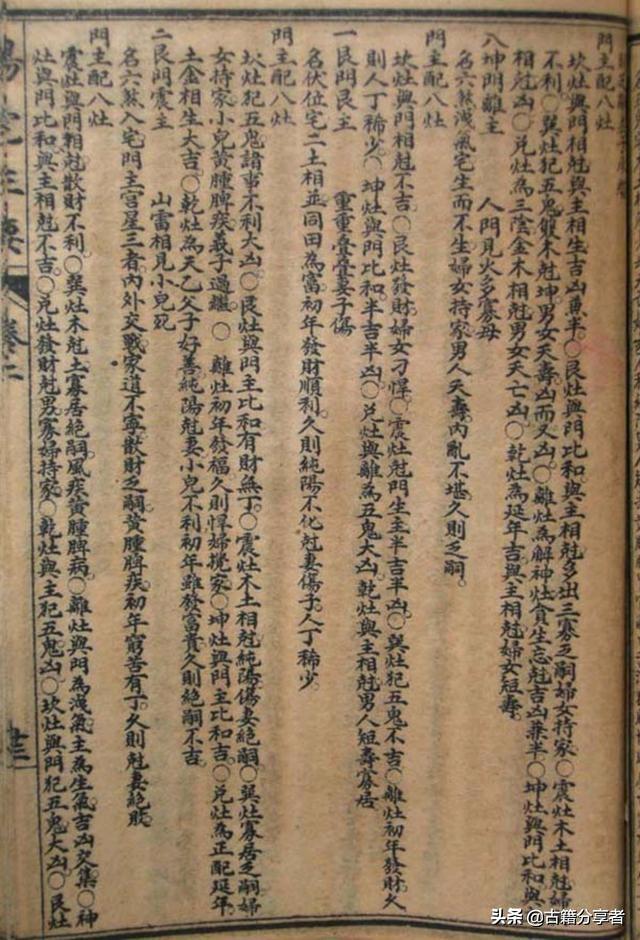 門主配八灶
坎灶與門相尅與主相生吉凶兼半〇艮灶與門比和與主相尅多出三寡乏嗣婦女持家〇震灶木土相尅婦
不利〇巽灶犯五鬼雙木尅坤男女夭壽凶而又凶〇離灶為解神灶貪生忘尅吉凶兼半〇坤灶與門比和與
相尅凶〇兌灶為三陰金木相尅男女夭亡凶〇乾灶為延年吉與主相尅婦女短壽
八坤門離主　人門見火多寡母
名六煞洩氣宅生而不生婦女持家男人夭壽內亂不堪久則乏嗣
門主配八灶
坎灶與門相尅不吉〇艮灶發財婦女刁悍〇震灶尅門生主半吉半凶〇巽灶犯五鬼不吉〇離灶初年發財久
則人丁稀少〇坤灶與門比和半吉半凶〇兌灶與離為五鬼大凶〇乾灶與主相尅男人短壽寡居
一艮門艮主　重重疊疊妻子傷
名伏位宅二土相並同田為富初年發財順利久則純陽不化尅妻傷子人丁稀少
門主配八灶
坎灶犯五鬼諸事不利大凶〇艮灶與門主比和有財無丁〇震灶木土相尅純陽傷妻絕嗣〇巽灶寡居乏嗣婦
女持家小兒黃腫脾疾義子過繼〇離灶初年發福久則悍婦攪家〇坤灶與門主比和吉〇兌灶為正配延年
土金相生大吉〇乾灶為天乙父子好善純陽尅妻小兒不利初年雖發富貴久則絕嗣不吉
二艮門震主　山雷相見小兒死
名六煞入宅門主宮星三者內外交戰家道不寧散財乏嗣黃腫脾疾初年窮苦有丁久則尅妻絕
門主配八灶
震灶與門相尅散財不利〇巽灶木尅土寡居絕嗣風疾黃腫脾病〇離灶與門為洩氣主為生氣吉凶交集〇坤
灶與門比和與主相尅不吉〇兌灶發財尅男寡婦持家〇乾灶與主犯五鬼凶〇坎灶與門犯五鬼大凶〇艮灶
卷二
廿三
头条 @古籍分享者